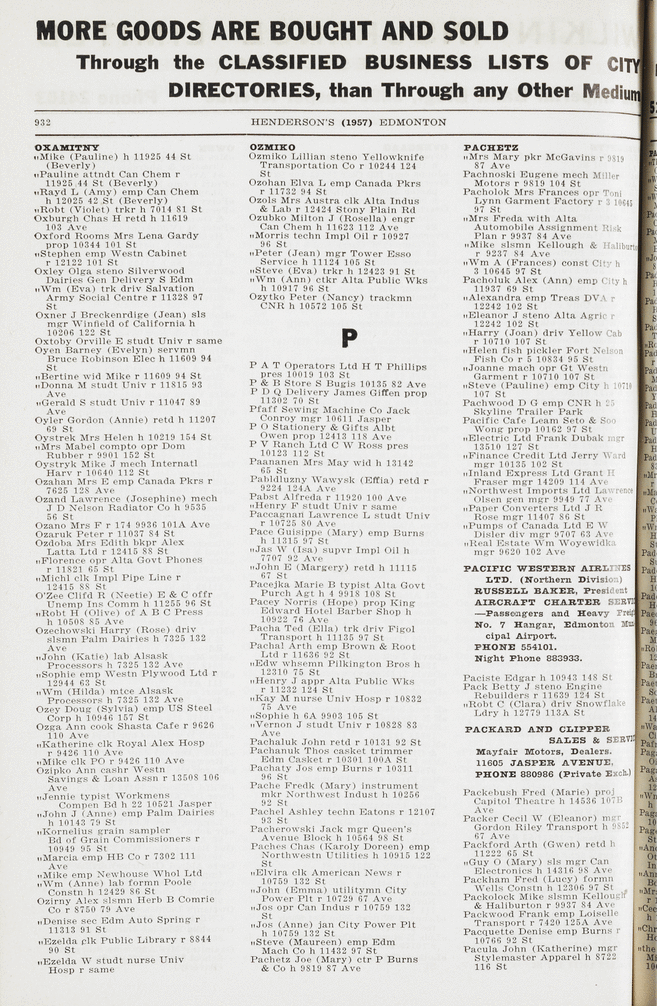 MORE GOODS ARE BOUGHT AND SOLD
Through the CLASSIFIED BUSINESS LISTS OF CITY
DIRECTORIES, than Through any Other Medium
932 HENDERSON'S (1957) EDMONTON
OXAMITNY
"Mike (Pauline) h 11925 44 St
(Beverly)
"Pauline attndt Can Chem r
11925 44 St (Beverly)
"Rayd L (Amy) emp Can Chem
h 12025 42 St (Beverly)
"Robt (Violet) trkr h 7014 81 St
Oxburgh Chas H retd h 11619
103 Ave
Oxford Rooms Mrs Lena Gardy
prop 10344 101 St
"Stephen emp Westn Cabinet
r 12122 101 St
Oxley Olga steno Silverwood
Dairies Gen Delivery S Edm
"Wm (Eva) trk driv Salvation
Army Social Centre r 11328 97
St
Oxner J Breckenridge (Jean) sls
mgr Winfield of California h
10206 122 St
Oxtoby Orville E studt Univ r same
Oyen Barney (Evelyn) servmn
Bruce Robinson Elec h 11609 94
St
"Bertine wid Mike r 11609 94 St
"Donna M studt Univ r 11815 93
Ave
"Gerald S studt Univ r 11047 89
Ave
Oyler Gordon (Annie) retd h 11207
69 St
Oystrek Mrs Helen h 10219 154 St
"Mrs Mabel compto opr Dom
Rubber r 9901 152 St
Oystryk Mike J mech Internatl
Harv r 10640 112 St
Ozahan Mrs E emp Canada Pkrs r
7625 128 Ave
Ozand Lawrence (Josephine) mech
J D Nelson Radiator Co h 9535
56 St
Ozano Mrs F r 174 9936 101A Ave
Ozaruk Peter r 11037 84 St
Ozdoba Mrs Edith bkpr Alex
Latta Ltd r 12415 88 St
"Florence opr Alta Govt Phones
r 11821 65 St
"Michl clk Impl Pipe Line r
12415 88 St
O'Zee Clifd R (Neetie) E & C offr
Unemp Ins Comm h 11255 96 St
"Robt H (Olive) of A B C Press
h 10508 85 Ave
Ozechowski Harry (Rose) driv
slsmn Palm Dairies h 7325 132
Ave
"John (Katie) lab Alsask
Processors h 7325 132 Ave
"Sophie emp Westn Plywood Ltd r
12944 63 St
"Wm (Hilda) mtce Alsask
Processors h 7325 132 Ave
Ozey Doug (Sylvia) emp US Steel
Corp h 10946 157 St
Ozga Ann cook Shasta Cafe r 9626
110 Ave
"Katherine clk Royal Alex Hosp
r 9426 110 Ave
"Mike clk PO r 9426 110 Ave
Ozipko Ann cashr Westn
Savings & Loan Assn r 13508 106
Ave
"Jennie typist Workmens
Compen Bd h 22 10521 Jasper
"John J (Anne) emp Palm Dairies
h 10143 79 St
"Kornelius grain sampler
Bd of Grain Commissioners r
10949 95 St
"Marcia emp HB Co r 7302 111
Ave
"Mike emp Newhouse Whol Ltd
"Wm (Anne) lab formn Poole
Constn h 12429 86 St
Ozirny Alex slsmn Herb B Comrie
Co r 8750 79 Ave
"Denise sec Edm Auto Spring r
11313 91 St
"Ezelda clk Public Library r 8844
90 St
"Ezelda W studt nurse Univ
Hosp r same
OZMIKO
Ozmiko Lillian steno Yellowknife
Transportation Co r 10244 124
St
Ozohan Elva L emp Canada Pkrs
r 11732 94 St
Ozols Mrs Austra clk Alta Indus
& Lab r 12424 Stony Plain Rd
Ozubko Milton J (Rosella) engr
Can Chem h 11623 112 Ave
"Morris techn Impl Oil r 10927
96 St
"Peter (Jean) mgr Tower Esso
Service h 11124 105 St
"Steve (Eva) trkr h 12423 91 St
"Wm (Ann) ctkr Alta Public Wks
h 10917 96 St
Ozytko Peter (Nancy) trackmn
CNR h 10572 105 St
P
P A T Operators Ltd H T Phillips
pres 10019 103 St
P & B Store S Bugis 10135 82 Ave
P D Q Delivery James Giffen prop
11302 70 St
Pfaff Sewing Machine Co Jack
Conroy mgr 10611 Jasper
P O Stationery & Gifts Albt
Owen prop 12413 118 Ave
P V Ranch Ltd C W Ross pres
10123 112 St
Paananen Mrs May wid h 13142
65 St
Pabldluzny Wawysk (Effia) retd r
9224 124A Ave
Pabst Alfreda r 11920 100 Ave
"Henry F studt Univ r same
Paccagnan Lawrence L studt Univ
r 10725 80 Ave
Pace Guisippe (Mary) emp Burns
h 11315 97 St
"Jas W (Isa) supvr Impl Oil h
7707 92 Ave
"John E (Margery) retd h 11115
67 St
Pacejka Marie B typist Alta Govt
Purch Agt h 4 9918 108 St
Pacey Norris (Hope) prop King
Edward Hotel Barber Shop h
10922 76 Ave
Pacha Ted (Ella) trk driv Figol
Transport h 11135 97 St
Pachal Arth emp Brown & Root
Ltd r 11636 92 St
"Edw whsemn Pilkington Bros h
12310 75 St
"Henry J appr Alta Public Wks
r 11232 124 St
"Kay M nurse Univ Hosp r 10832
75 Ave
"Sophie h 6A 9903 105 St
"Vernon J studt Univ r 10828 83
Ave
Pachaluk John retd r 10131 92 St
Pachanuk Thos casket trimmer
Edm Casket r 10301 100A St
Pachaty Jos emp Burns r 10311
96 St
Pache Fredk (Mary) instrument
mkr Northwest Indust h 10256
92 St
Pachel Ashley techn Eatons r 12107
93 St
Pacherowski Jack mgr Queen's
Avenue Block h 10564 98 St
Paches Chas (Karoly Doreen) emp
Northwestn Utilities h 10915 122
St
"Elvira clk American News r
10759 132 St
"John (Emma) utilitymn City
Power Plt r 10729 67 Ave
"Jos opr Can Indus r 10759 132
St
"Jos (Anne) jan City Power Plt
h 10759 132 St
"Steve (Maureen) emp Edm
Mach Co h 11432 97 St
Pachetz Joe (Mary) ctr P Burns
& Co h 9819 87 Ave
PACHETZ
"Mrs Mary pkr McGavins r 9819
87 Ave
Pachnoski Eugene mech Miller
Motors r 9819 104 St
Pacholok Mrs Frances opr Toni
Lynn Garment Factory r 3 10645
97 St
"Mrs Freda with Alta
Automobile Assignment Risk
Plan r 9937 84 Ave
"Mike slsmn Kellough & Haliburton
r 9237 84 Ave
"Wm A (Frances) const City h
3 10645 97 St
Pacholuk Alex (Ann) emp City h
11937 69 St
"Alexandra emp Treas DVA r
12242 102 St
"Eleanor J steno Alta Agric r
12242 102 St
"Harry (Joan) driv Yellow Cab
r 10710 107 St
"Helen fish pickler Fort Nelson
Fish Co r 5 10834 95 St
"Joanne mach opr Gt Westn
Garment r 10710 107 St
"Steve (Pauline) emp City h 10710
107 St
Pachwood D G emp CNR h 25
Skyline Trailer Park
Pacific Cafe Leam Seto & Soo
Wong prop 10162 97 St
"Electric Ltd Frank Dubak mgr
13510 127 St
"Finance Credit Ltd Jerry Ward
mgr 10135 102 St
"Inland Express Ltd Grant H
Fraser mgr 14209 114 Ave
"Northwest Imports Ltd Lawrence
Olsen gen mgr 9949 77 Ave
"Paper Converters Ltd J R
Rose mgr 11407 86 St
"Pumps of Canada Ltd E W
Disler div mgr 9707 63 Ave
"Real Estate Wm Woyewidka
mgr 9620 102 Ave
PACIFIC WESTERN AIRLINES
LTD. (Northern Division)
RUSSELL BAKER, President
AIRCRAFT CHARTER
—Passengers and Heavy
No. 7 Hangar, Edmonton
cipal Airport.
PHONE 554101.
Night Phone 883933.
Paciste Edgar h 10943 148 St
Pack Betty J steno Engine
Rebuilders r 11639 124 St
"Robt C (Clara) driv Snowflake
Ldry h 12779 113A St
PACKARD AND CLIPPER
SALES &
Mayfair Motors, Dealers.
11605 JASPER AVENUE,
PHONE 880986 (Private Exch.)
Packebush Fred (Marie) proj
Capitol Theatre h 14536 107B
Ave
Packer Cecil W (Eleanor) mgr
Gordon Riley Transport h 9852
67 Ave
Packford Arth (Gwen) retd h
11222 65 St
"Guy O (Mary) sls mgr Can
Electronics h 14316 98 Ave
Packham Fred (Lucy) formn
Wells Constn h 12306 97 St
Packolock Mike slsmn Kellough
& Haliburton r 9937 84 Ave
Packwood Frank emp Loiselle
Transport r 7420 125A Ave
Pacquette Denise emp Burns r
10766 92 St
Pacula John (Katherine) mgr
Stylemaster Apparel h 8722
116 St